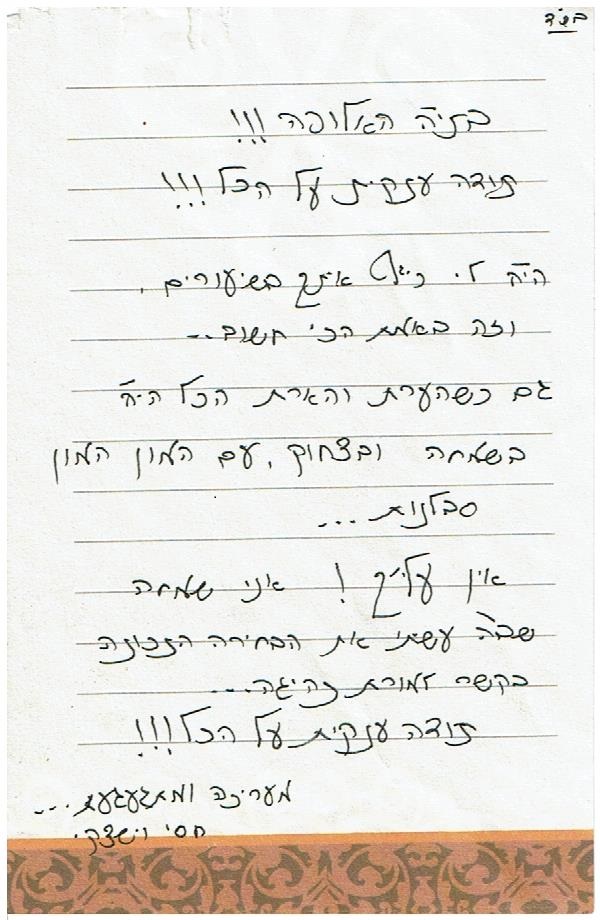 בס"ד
בתיה האלופה!!!
תודה ענקית על הכל!!!
היה לי כיף איתך בשיעורים,
וזה באמת הכי חשוב...
גם כשהערת והארת הכל היה
בשמחה ובצחוק, עם המון המון
סבלנות...
אין עלייך! אני שמחה
שב"ה עשיתי את הבחירה הנכונה
בקשר למורת נהיגה...
תודה ענקית על הכל!!!
מעריכה ומתגעגעת...
חסי